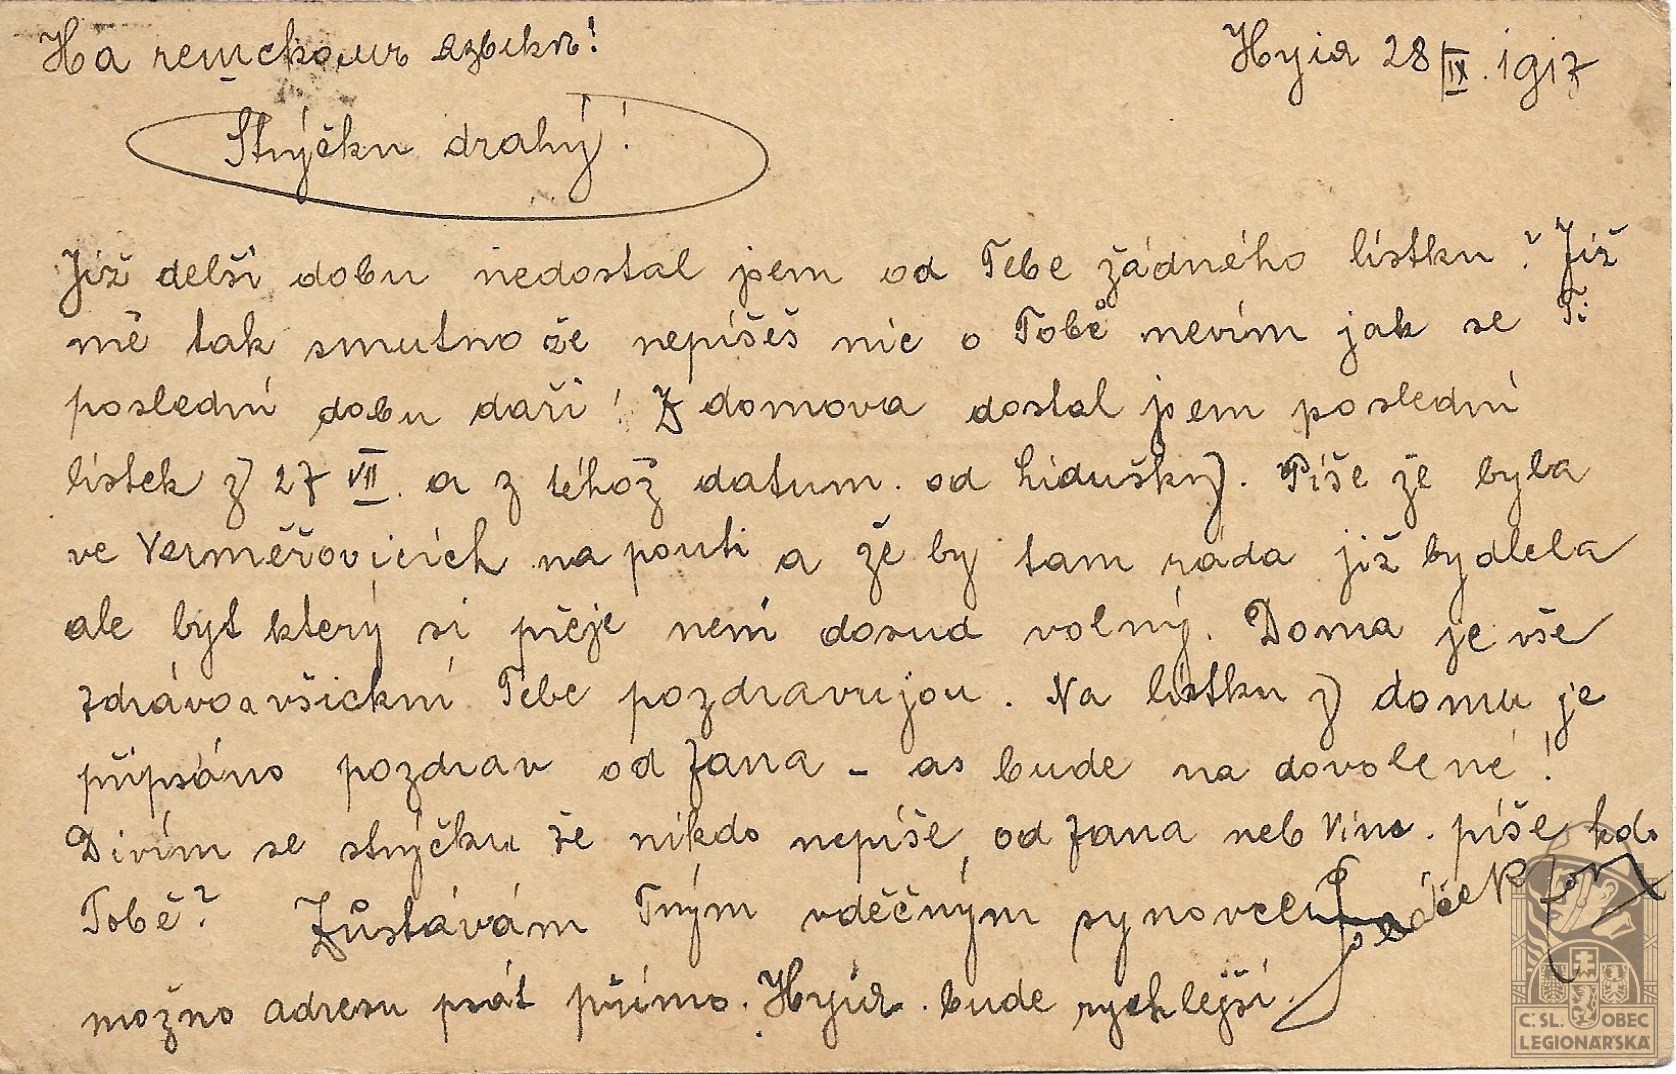 На чешскомъ языкѣ!
Нуія 28 IX. 1917
Strýčku drahý!
Již delši dobu nedostal jsem od Tebe žádného lístku? Již
mě tak smutno že nepíšeš nic o Tobě nevím jak se Ti
poslední dobu daří! Z domova dostal jsem poslední
lístek z 27 VII. a z téhož datum. od Lidušky. Píše že byla
ve Verměřovicích na pouti a že by tam ráda již bydlela
ale byt který si přeje není dosud volný. Doma je vše
zdrávo a všickní Tebe pozdravujou. Na lístku z domu je
připsáno pozdrav od Jana - as bude na dovolené!
Divím se strýčku že nikdo nepíše, od Jana neb Vinc. píše kdo
Tobě? Zůstávám Tvým vděčným synovcem
možno adresu psát přímo. Нуія. bude rychlejší.
Č. SL. OBEC
LEGIONÁŘSKÁ